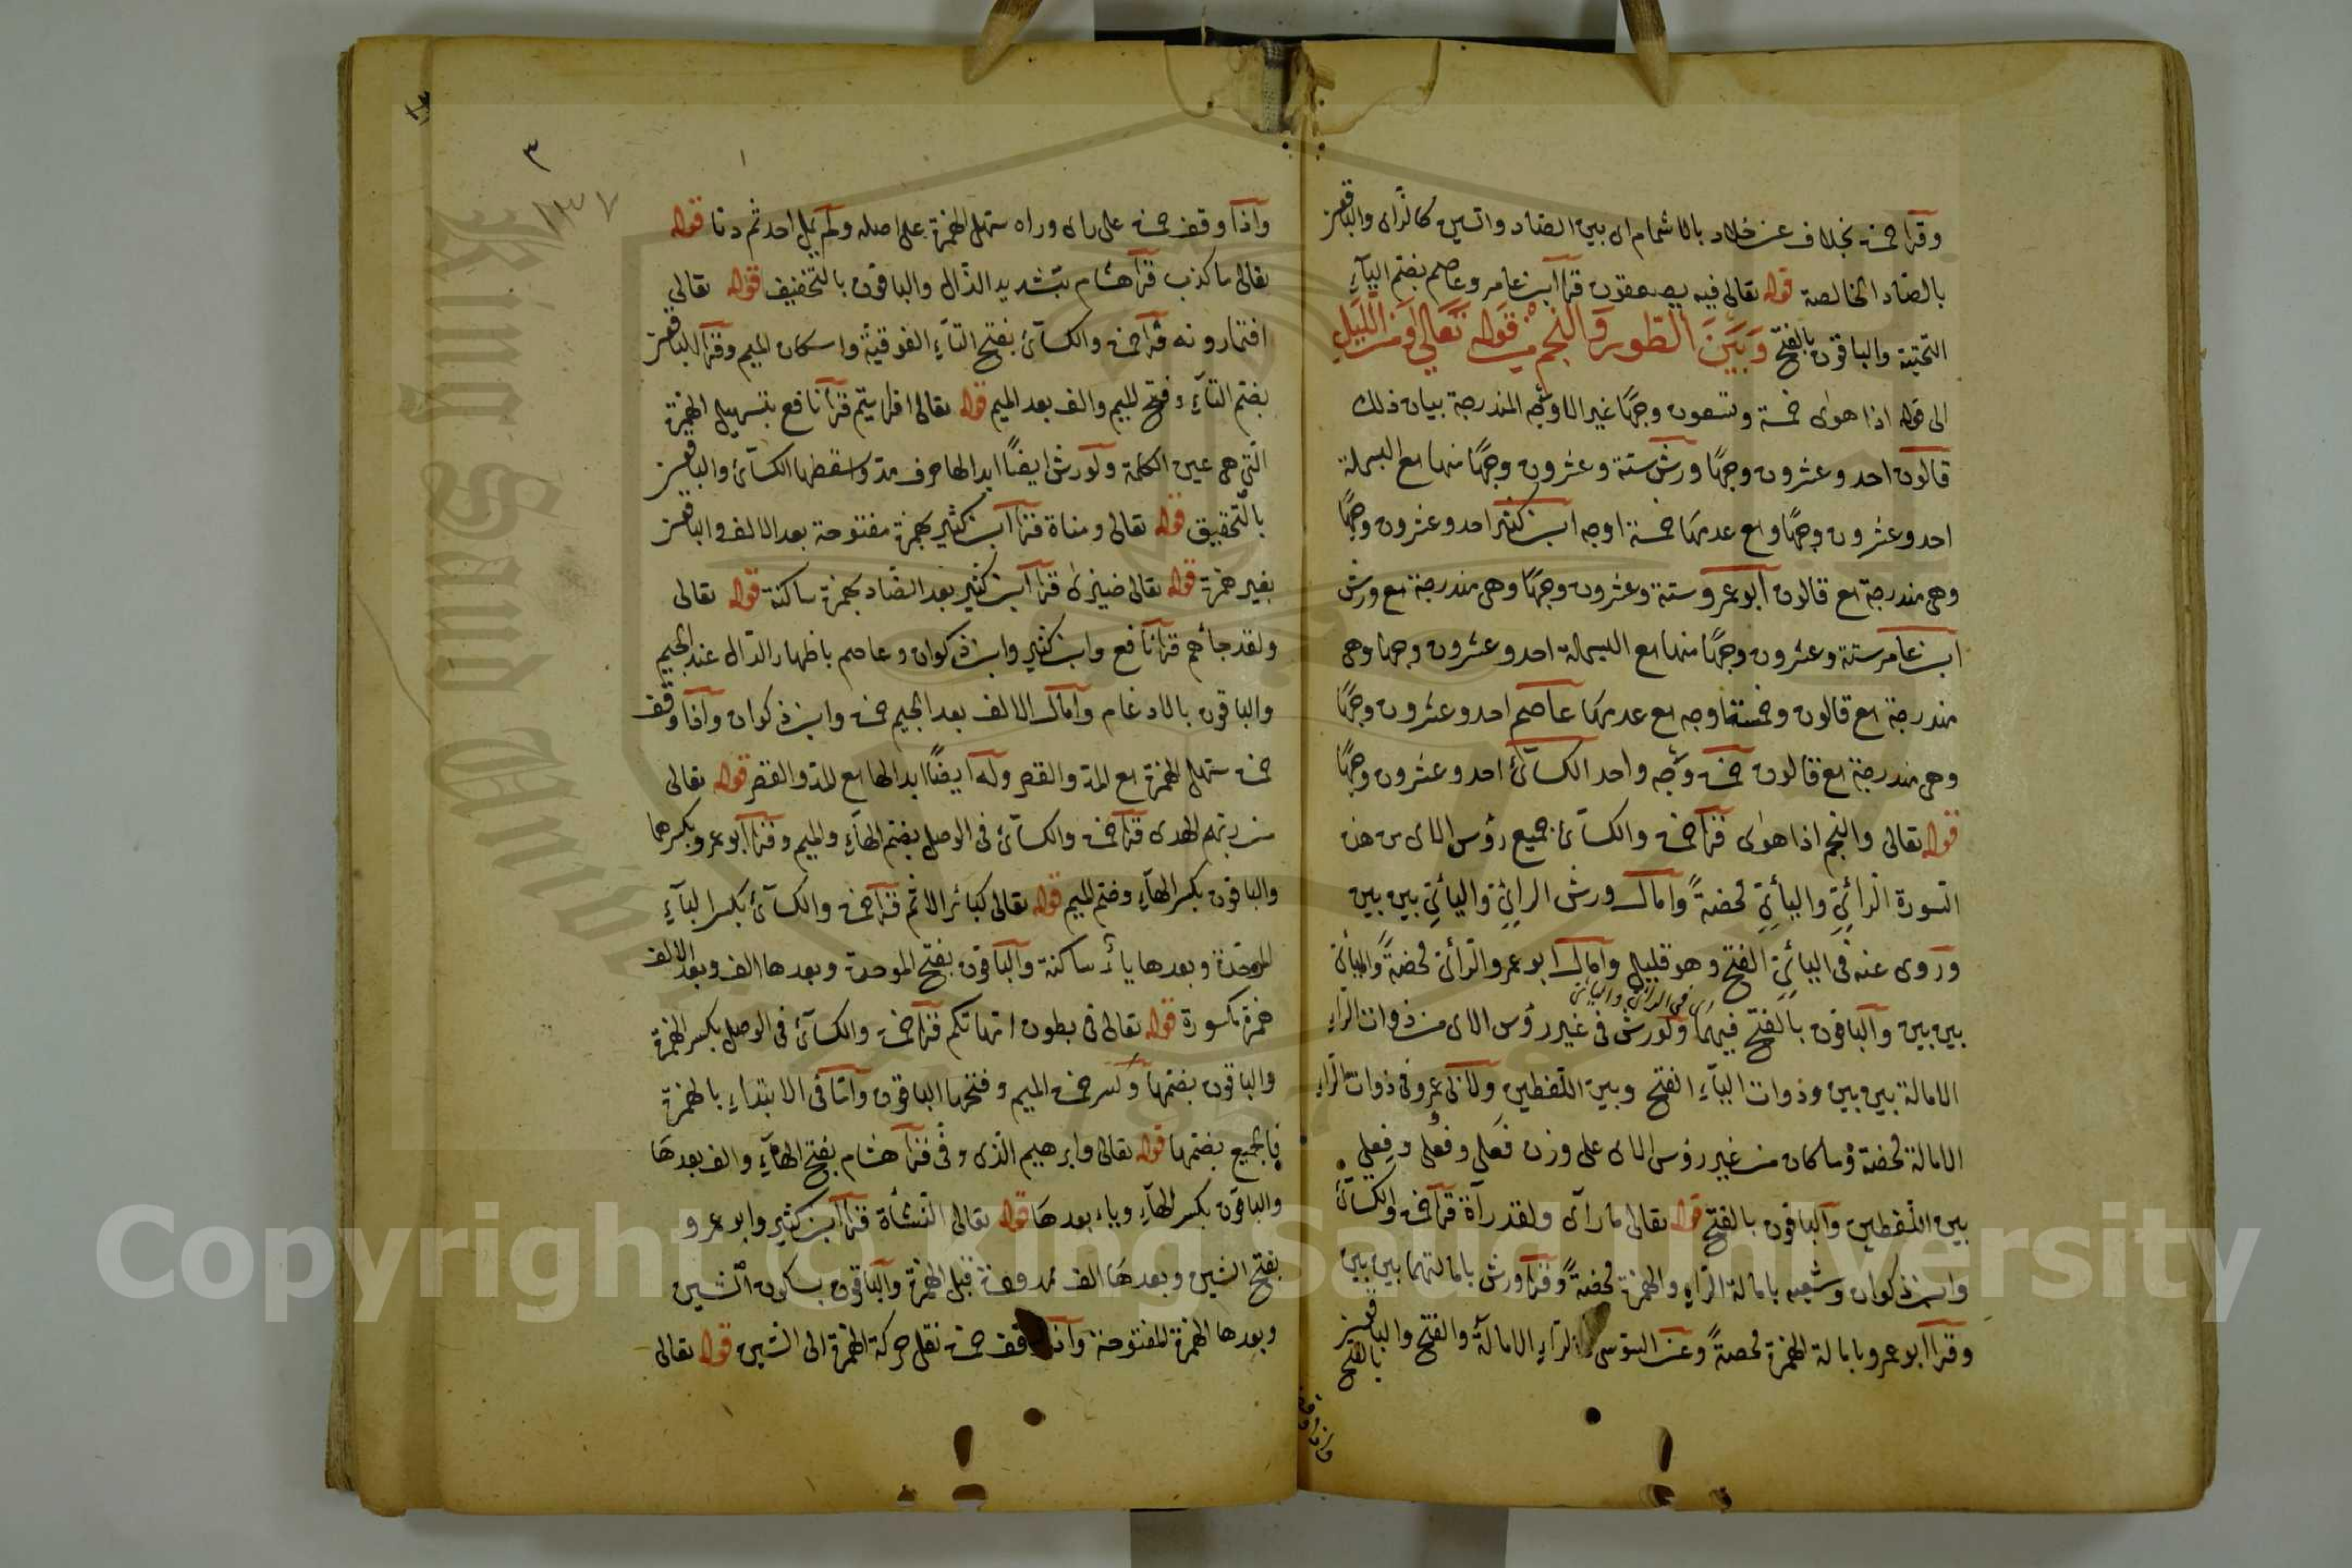 وقرا حمزة بخلاف عن خلاد بالاشمام اي بين الصاد والسين كالزاى والباقون
بالصاد الخالصة قوله تعالى فيه يصعقون قرا ابن عامر وعاصم بضم اليآء
التحتية والباقون بالفتح وَبَيْنَ الطّورِ وَالنجم من قوله تعالى وَمن اللّيلِ
الى قوله اذا هوى خمسة وتسعون وجهًا غير الاوجه المندرجة بيان ذلك
قالون احد وعشرون وجهًا ورش ستة وعشرون وجهًا منها مع البسملة
احد وعشرون وجهًا ومع عدمها خمسة اوجه ابن كثير احد وعشرون وجهًا
وهى مندرجة مع قالون ابو عمرو ستة وعشرون وجهًا وهى مندرجة مع ورش
ابن عامر ستة وعشرون وجهًا منها مع البسملة احد وعشرون وجها وهى
مندرجة مع قالون وخمسة اوجه مع عدمها عاصم احد وعشرون وجهًا
وهى مندرجة مع قالون حمزة وجه واحد الكسآئ احد وعشرون وجهًا
قوله تعالى والنجم اذا هوى قرا حمزة والكسآئ جميع رؤس الاى من هذه
السورة الرائىِّ واليائىِّ محضةً وامال ورش الرائىِ واليائىِ بين بين
وروى عنه فى اليائىِّ الفتح وهو قليل وامال ابو عمرو الرائى محضةً واليائى
اى فى الرائى واليائى
بين بين والباقون بالفتح فيهما ولورش فى غير رؤس الاى من ذوات الرآء
الامالة بين بين وذوات اليآء الفتح وبين اللفظين ولابى عمرو فى ذوات الرآء
الامالة محضة وما كان من غير رؤس الاى على وزن فَعلى وفُعلى وفِعلى
بين اللفظين والباقون بالفتح قوله تعالى ما رآى ولقد رآه قرا حمزة والكسآئ
وابن ذكوان وشعبه بامالة الرآء والهمزة محضةً وقرا ورش بامالتهما بين بين
وقرا ابو عمرو بامالة الهمزة محضةً وعن السوسى الرآء الامالة والفتح والباقون
بالفتح
واذا وقف
٣
١٣٧
واذا وقف حمزة على راى وراه سهل الهمزة على اصله ولم يمل احد ثم دنا قوله
تعالى ما كذب قرا هشام بتشديد الذال والباقون بالتخفيف قوله تعالى
افتمارونه قرا حمزة والكسآئ بفتح التآء الفوقيّة واسكان الميم وقرا الباقون
بضم التآء وفتح الميم والف بعد الميم قوله تعالى افرايتم قرا نافع بتسهيل الهمزة
التى هى عين الكلمة ولورش ايضًا ابدالها حرف مد واسقطها الكسآئ والباقون
بالتحقيق قوله تعالى ومناة قرا ابن كثير بهمزة مفتوحة بعد الالف والباقون
بغير همزة قوله تعالى ضيزى قرا ابن كثير بعد الضاد بهمزة ساكنة قوله تعالى
ولقد جآءهم قرا نافع وابن كثير وابن ذكوان وعاصم باظهار الدال عند الجيم
والباقون بالادغام وامال الالف بعد الجيم حمزة وابن ذكوان واذا وقف
حمزة سهل الهمزة مع المد والقصر وله ايضًا ابدالها مع المد والقصر قوله تعالى
من ربهم الهدى قرا حمزة والكسآئ فى الوصل بضم الهآء والميم وقرا ابو عمرو بكسرهما
والباقون بكسر الهآء وضم الميم قوله تعالى كبائر الاثم قرا حمزة والكسآئ بكسر البآء
الموحّدة وبعدها يآء ساكنة والباقون بفتح الموحدة وبعدها الف وبعد الالف
همزة مكسورة قوله تعالى فى بطون امهاتكم قرا حمزة والكسآئ فى الوصل بكسر الهمزة
والباقون بضمها وكسر حمزة الميم وفتحها الباقون وامّا فى الابتداء بالهمزة
فالجميع بضمها قوله تعالى وابرهيم الذى وفّى قرا هشام بفتح الهآء والف بعدها
والباقون بكسر الهآء وياء بعدها قوله تعالى النشأة قرا ابن كثير وابو عمرو
بفتح الشين وبعدها الف ممدودة قبل الهمزة والباقون بسكون الشين
وبعدها الهمزة المفتوحة واذا وقف حمزة نقل حركة الهمزة الى الشين قوله تعالى
King Saud University
Copyright © King Saud University